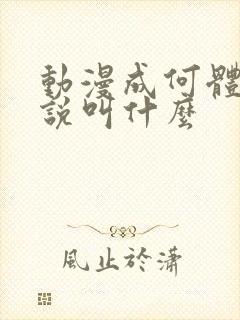 動漫成何體
說叫什麼
風止於瀟